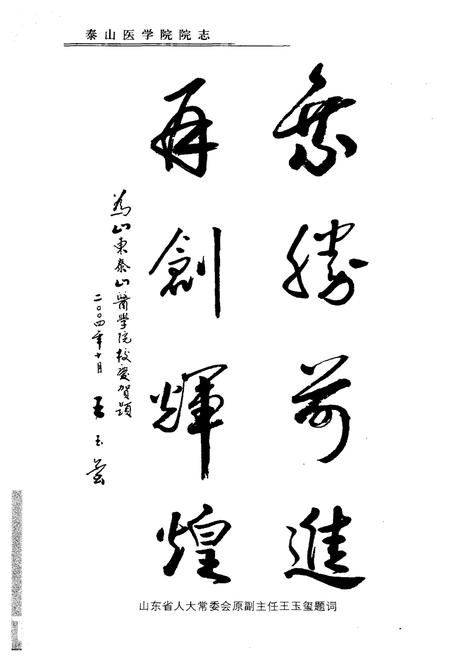 泰山医学院院志
乘勝前進
再創輝煌
為山東泰山醫学院校慶賀題
二〇〇四年十月 王玉璽
山东省人大常委会原副主任王玉玺题词